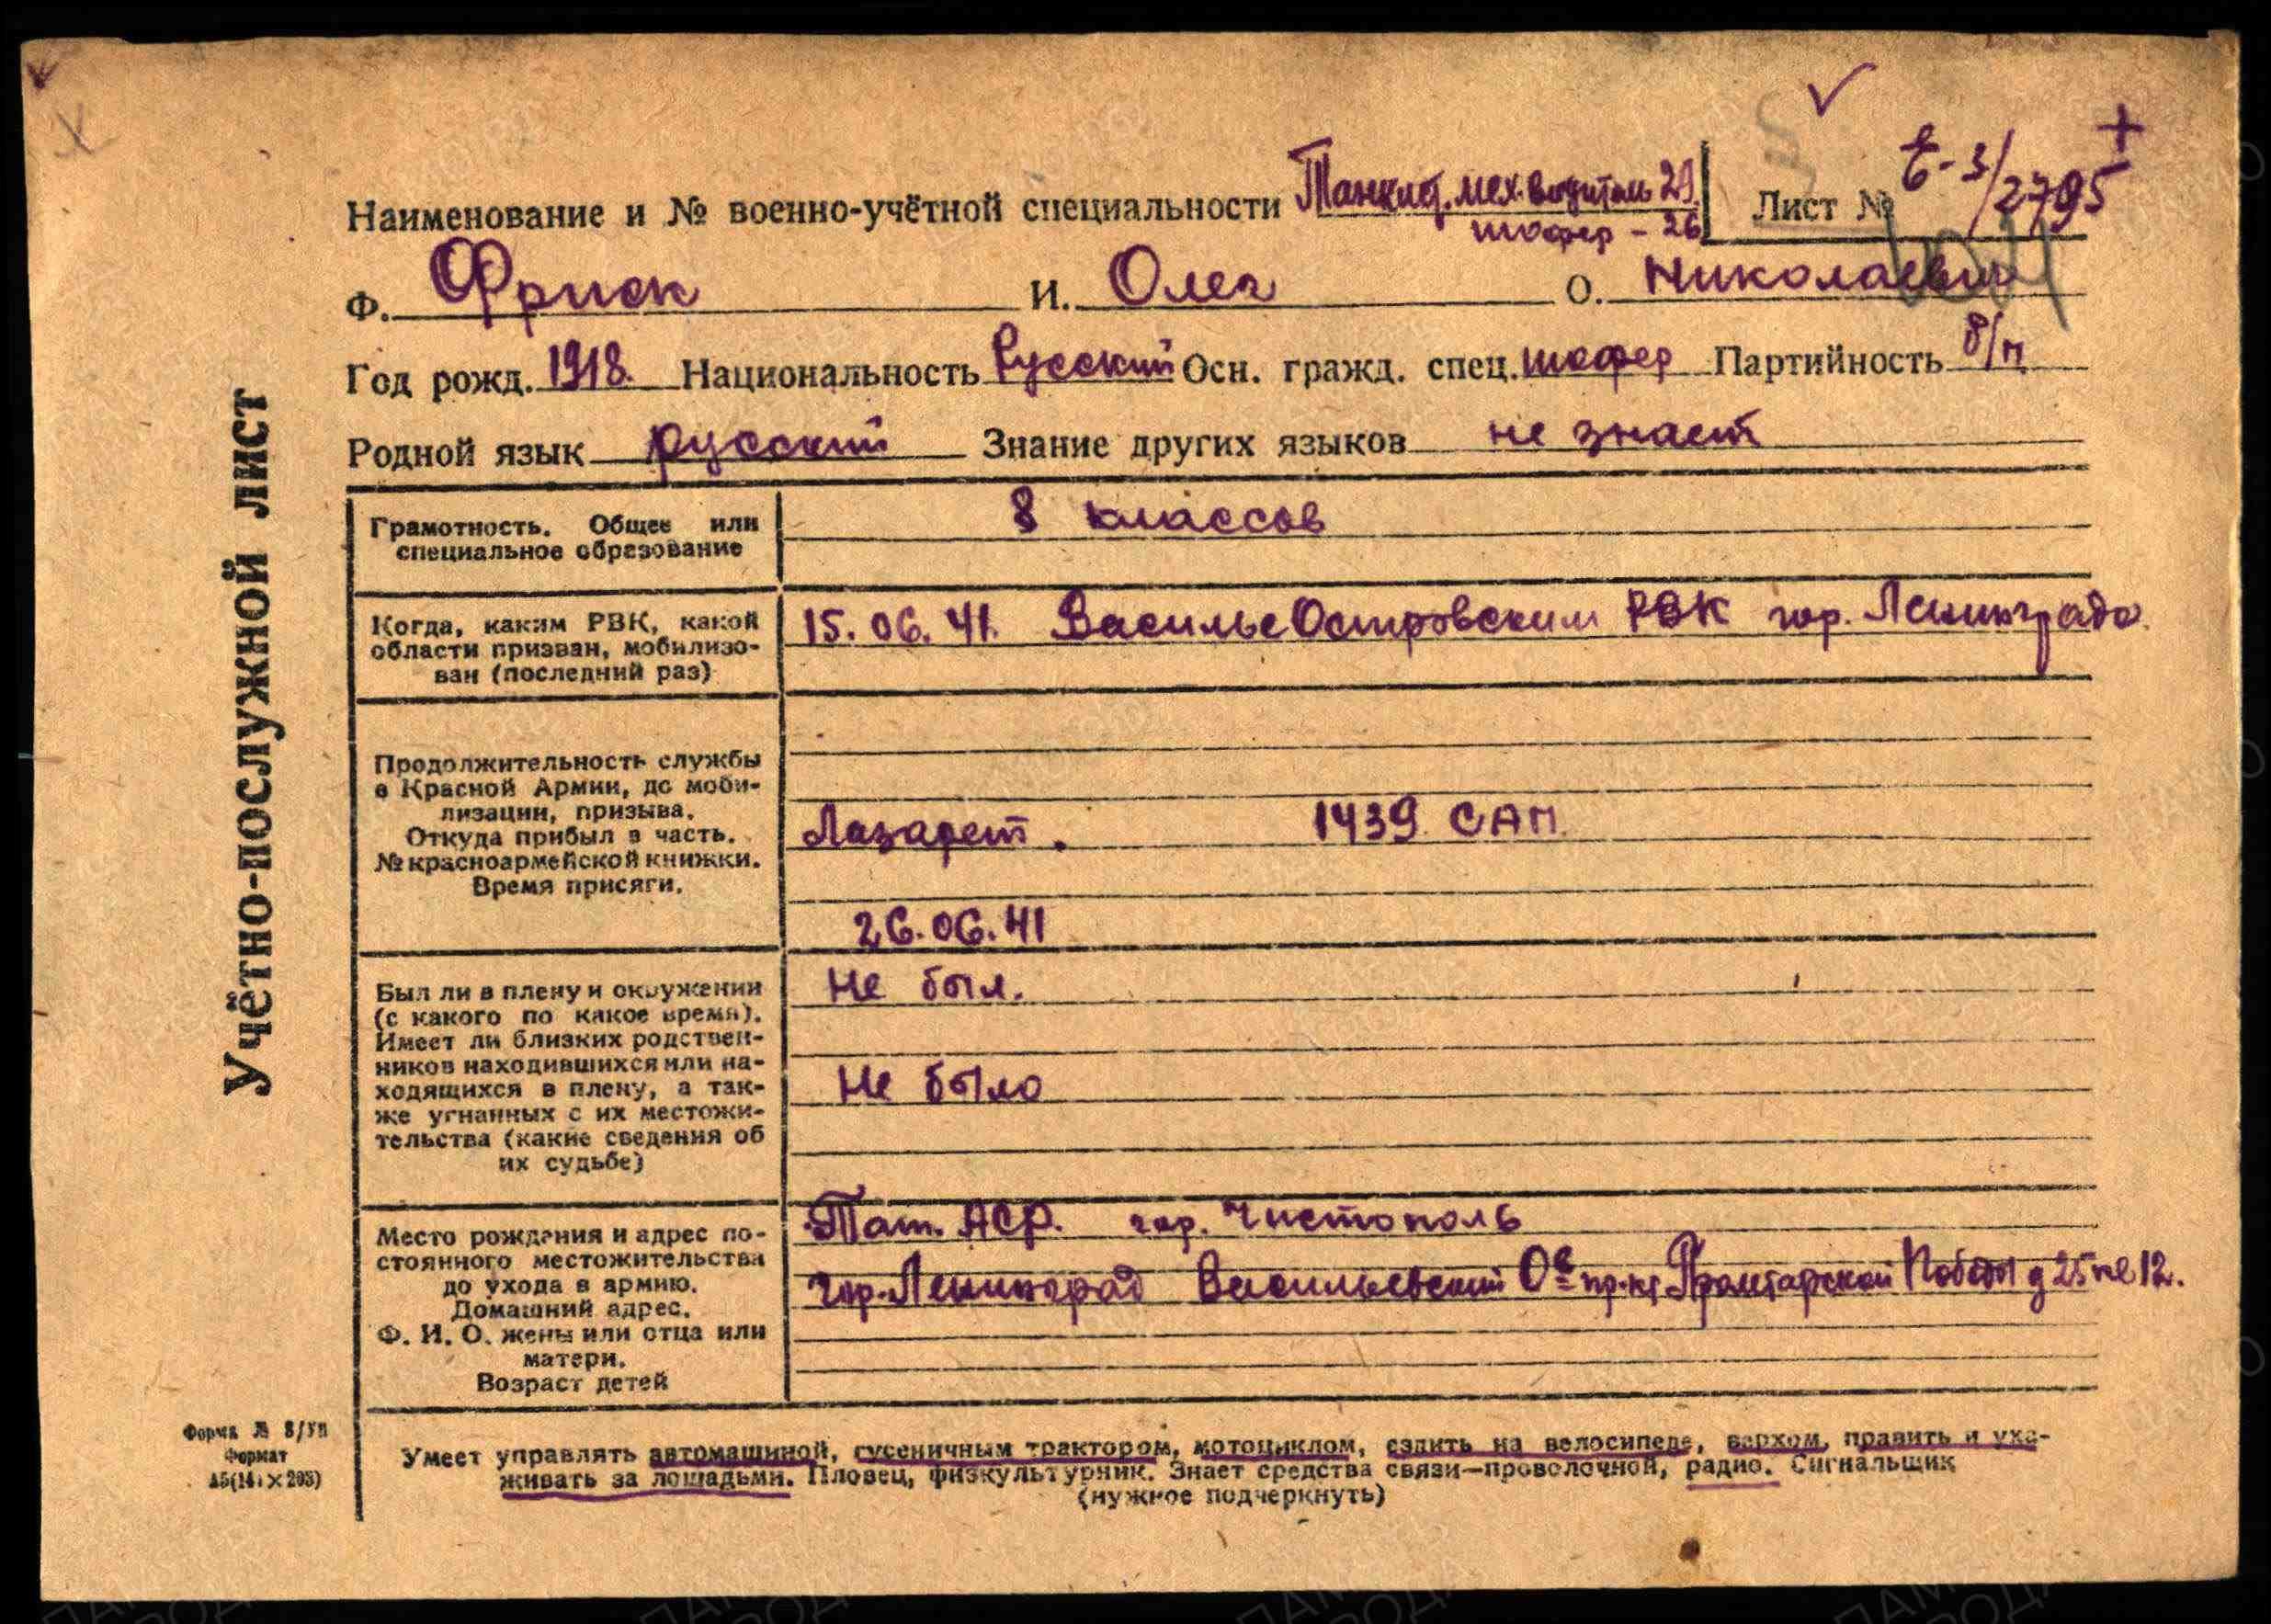 Учётно-послужной лист
Наименование и № военно-учётной специальности Танкист. мех. водитель 29.
шофер - 26
Лист № 6-3/2795
Ф. Фриск И. Олег О. Николаевич
Год рожд. 1918. Национальность Русский Осн. гражд. спец. шофер Партийность б/п
Родной язык русский Знание других языков не знает
Грамотность. Общее или
специальное образование
8 классов
Когда, каким РВК, какой
области призван, мобилизо-
ван (последний раз)
15.06.41. ВасильеОстровским РВК гор. Ленинграда.
Продолжительность службы
в Красной Армии, до моби-
лизации, призыва.
Откуда прибыл в часть.
№ красноармейской книжки.
Время присяги.
Лазарет. 1439 САП.
26.06.41
Был ли в плену и окружении
(с какого по какое время).
Имеет ли близких родствен-
ников находившихся или на-
ходящихся в плену, а так-
же угнанных с их местожи-
тельства (какие сведения об
их судьбе)
Не был.
Не было
Место рождения и адрес по-
стоянного местожительства
до ухода в армию.
Домашний адрес.
Ф. И. О. жены или отца или
матери.
Возраст детей
Тат. АСР. гор. Чистополь
гор. Ленинград Васильевский Ов пр-кт Пролетарской Победы д 25 кв 12.
Форма № 8/УП
Формат
А5(14 × 203)
Умеет управлять автомашиной, гусеничным трактором, мотоциклом, ездить на велосипеде, верхом, править и уха-
живать за лошадьми. Пловец, физкультурник. Знает средства связи—проволочной, радио. Сигнальщик
(нужное подчеркнуть)